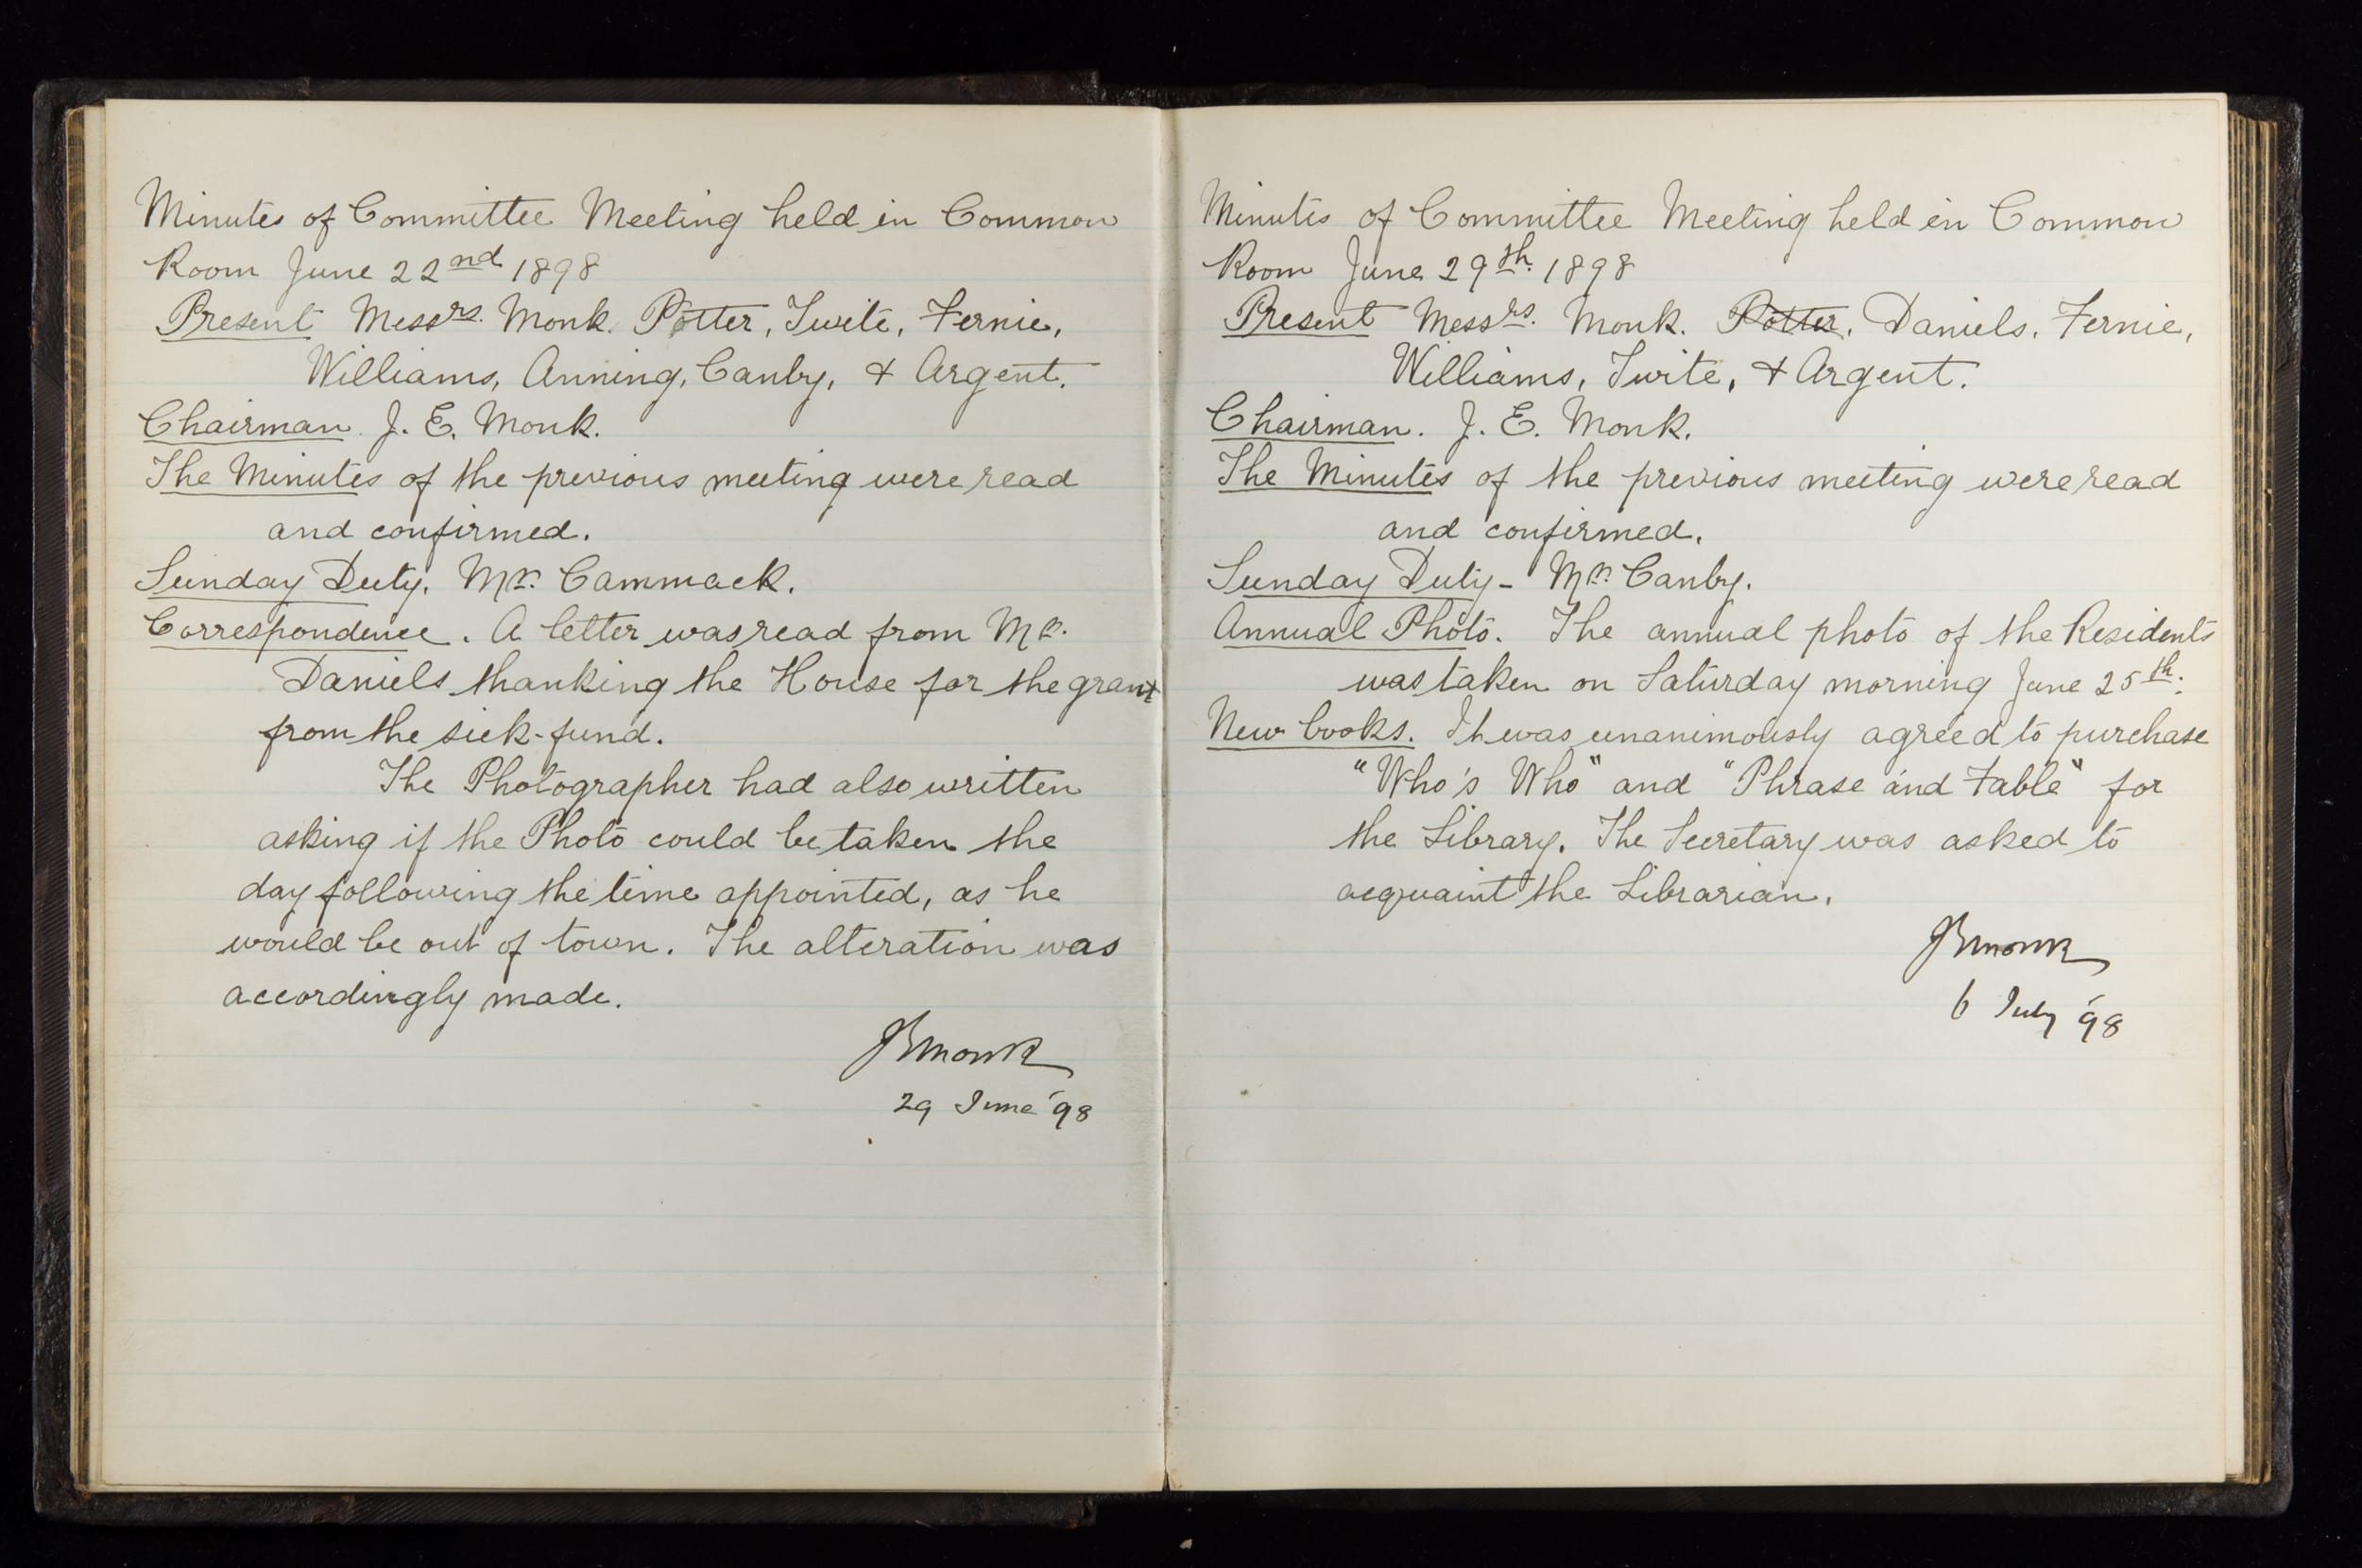 Minutes of Committee Meeting held in Common
Room June 22nd 1898
Present Messrs. Monk. Potter, Twite, Fernie,
Williams, Anning, Canby, & Argent.
Chairman. J. E. Monk.
The Minutes of the previous meeting were read
and confirmed.
Sunday Duty. Mr. Cammack.
Correspondence. A letter was read from Mr.
Daniels thanking the House for the grant
from the sick-fund.
The Photographer had also written
asking if the Photo could be taken the
day following the time appointed, as he
would be out of town. The alteration was
accordingly made.
JEMonk
29 June '98
Minutes of Committee Meeting held in Common
Room June 29th. 1898
Present Messrs. Monk. Potter, Daniels, Fernie,
Williams, Twite, & Argent.
Chairman. J. E. Monk.
The Minutes of the previous meeting were read
and confirmed.
Sunday Duty - Mr. Canby.
Annual Photo. The annual photo of the Residents
was taken on Saturday morning June 25th.
New books. It was unanimously agreed to purchase
"Who's Who" and "Phrase and Fable" for
the Library. The Secretary was asked to
acquaint the Librarian.
JEMonk
6 July '98